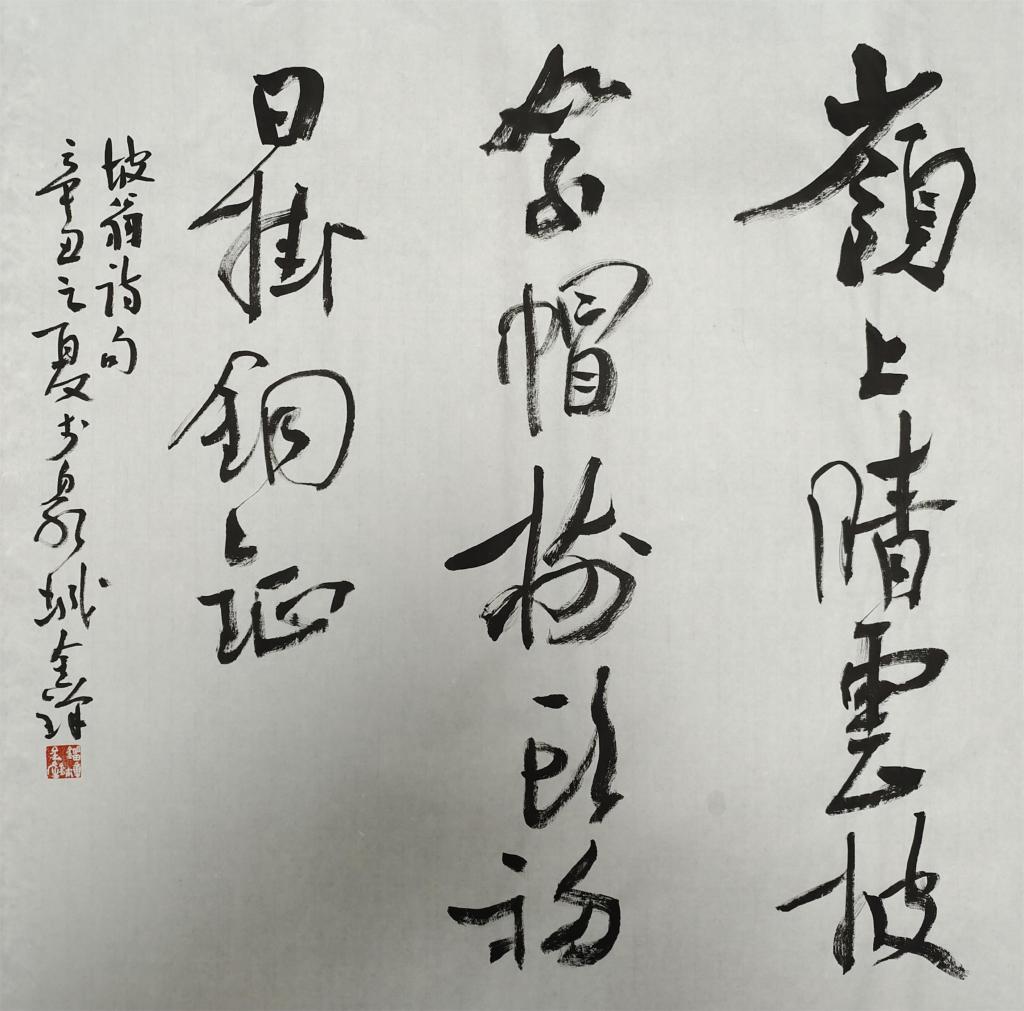 嶺上晴雲披
絮帽樹頭初
日掛銅鉦
坡翁詩句
辛丑之夏於泉城金祥